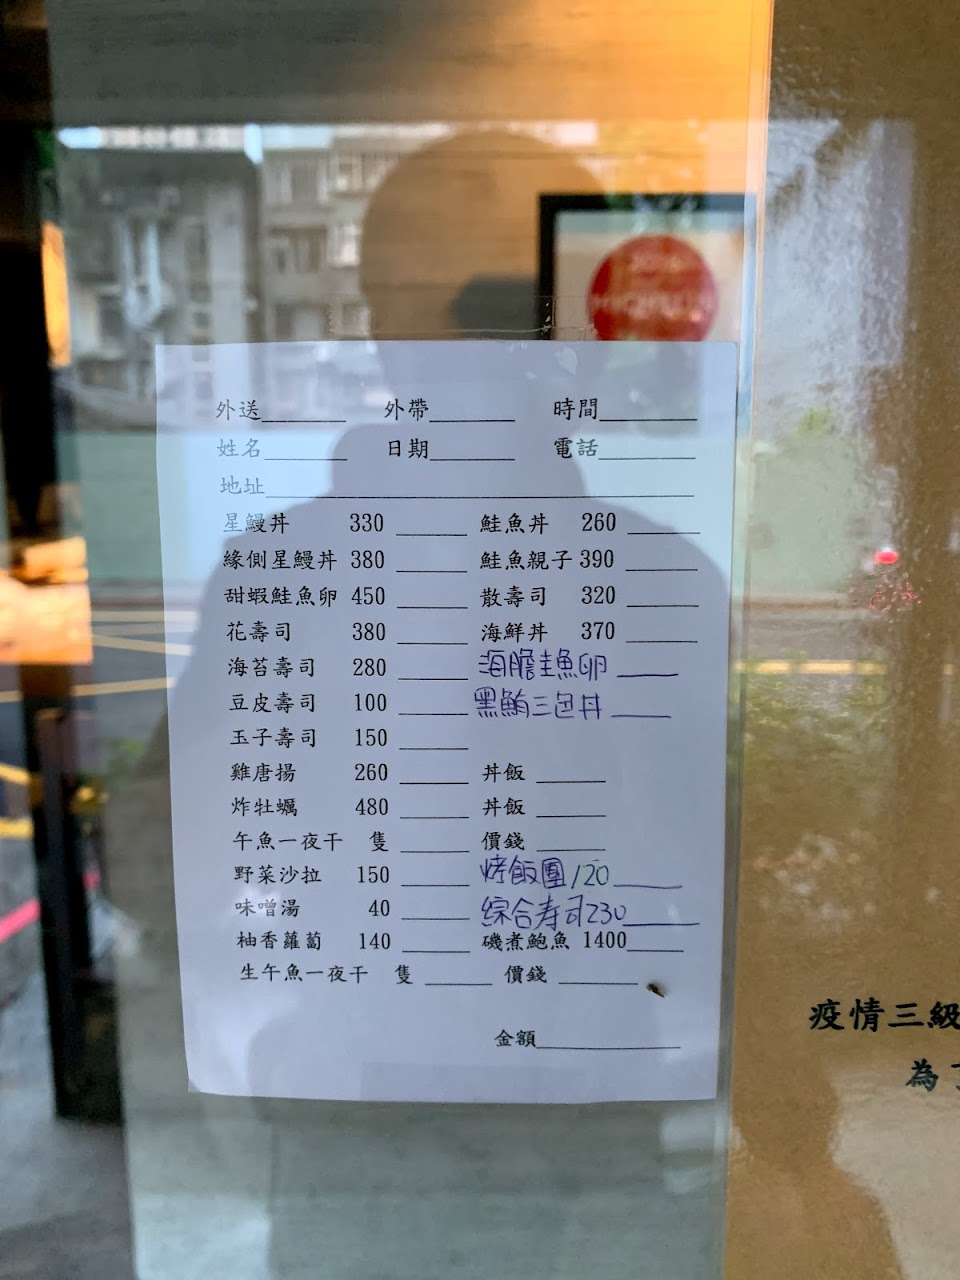 外送______ 外帶______ 時間______
姓名______ 日期______ 電話______
地址______
星鰻丼 330 ______ 鮭魚丼 260 ______
緣側星鰻丼 380 ______ 鮭魚親子 390 ______
甜蝦鮭魚卵 450 ______ 散壽司 320 ______
花壽司 380 ______ 海鮮丼 370 ______
海苔壽司 280 ______ 海膽鮭魚卵 ______
豆皮壽司 100 ______ 黑鮪三色丼 ______
玉子壽司 150 ______
雞唐揚 260 ______ 丼飯 ______
炸牡蠣 480 ______ 丼飯 ______
午魚一夜干 隻 ______ 價錢 ______
野菜沙拉 150 ______ 烤飯糰 120 ______
味噌湯 40 ______ 綜合寿司 230 ______
柚香蘿蔔 140 ______ 磯煮鮑魚 1400 ______
生午魚一夜干 隻 ______ 價錢 ______
金額______
疫情三級
為了